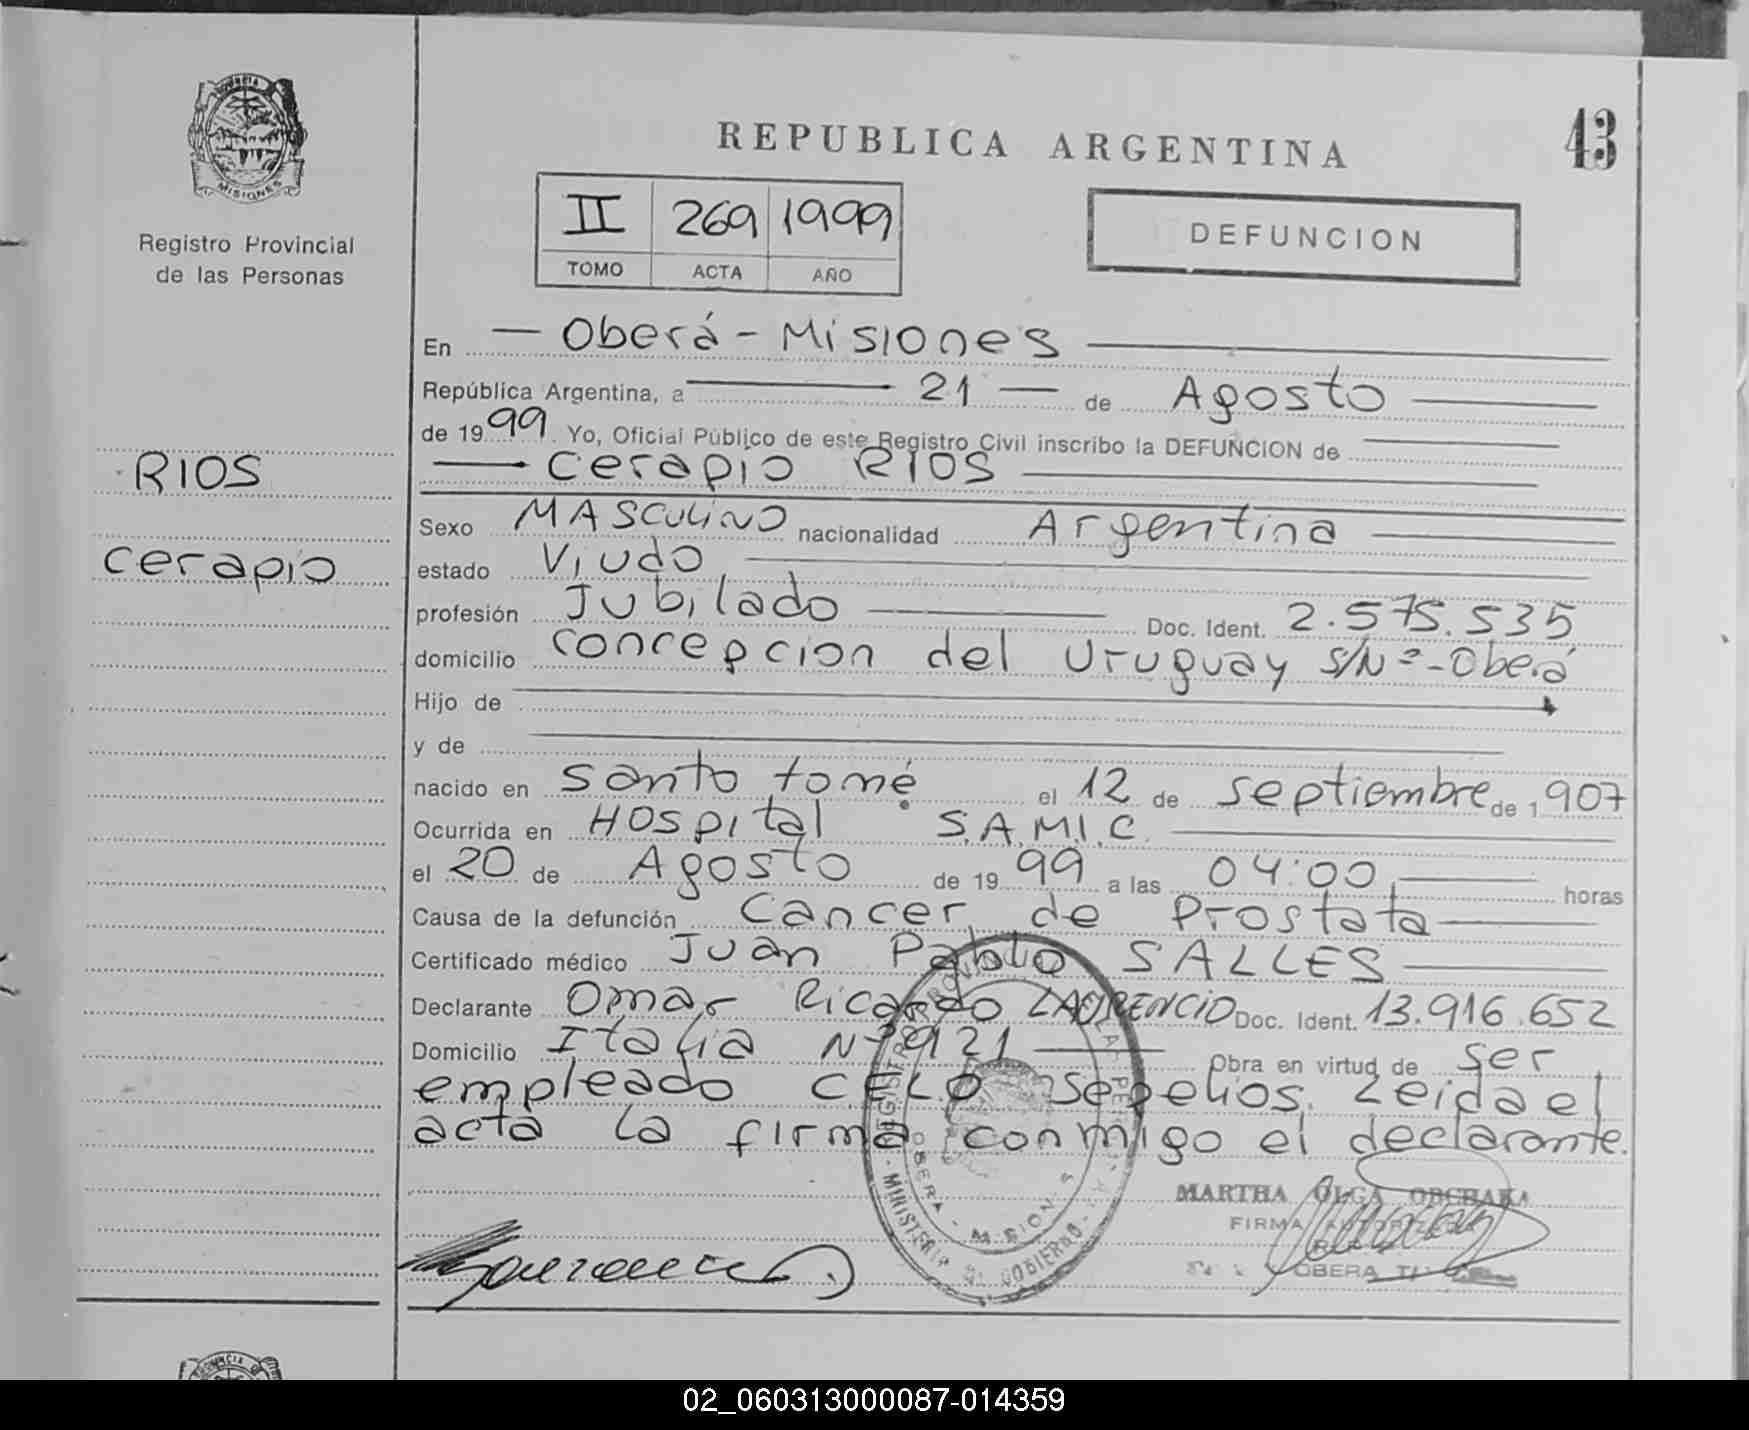 PROVINCIA
MISIONES
Registro Provincial
de las Personas
REPUBLICA ARGENTINA
43
II 269 1999
TOMO ACTA AÑO
DEFUNCION
En Oberá - Misiones
República Argentina, a 21 de Agosto
de 1999. Yo, Oficial Público de este Registro Civil inscribo la DEFUNCION de
RIOS
Cerapio RIOS
Cerapio
Sexo MASCULINO nacionalidad Argentina
estado Viudo
profesión Jubilado Doc. Ident. 2.575.535
domicilio Concepcion del Uruguay S/Nº - Oberá
Hijo de
y de
nacido en Santo tomé el 12 de Septiembre de 1907
Ocurrida en Hospital S.A.M.I.C.
el 20 de Agosto de 1999 a las 04:00 horas
Causa de la defunción Cancer de Prostata
Certificado médico Juan Pablo SALLES
Declarante Omar Ricardo LAURENCIO Doc. Ident. 13.916.652
Domicilio Italia Nº 921 Obra en virtud de Ser
empleado CELO Sepelios. Leida el
acta la firma conmigo el declarante.
MARTHA OLGA
FIRMA AUTORIZADA
OBERA
MINISTERIO DE GOBIERNO
OBERA - MISIONES
02_060313000087-014359